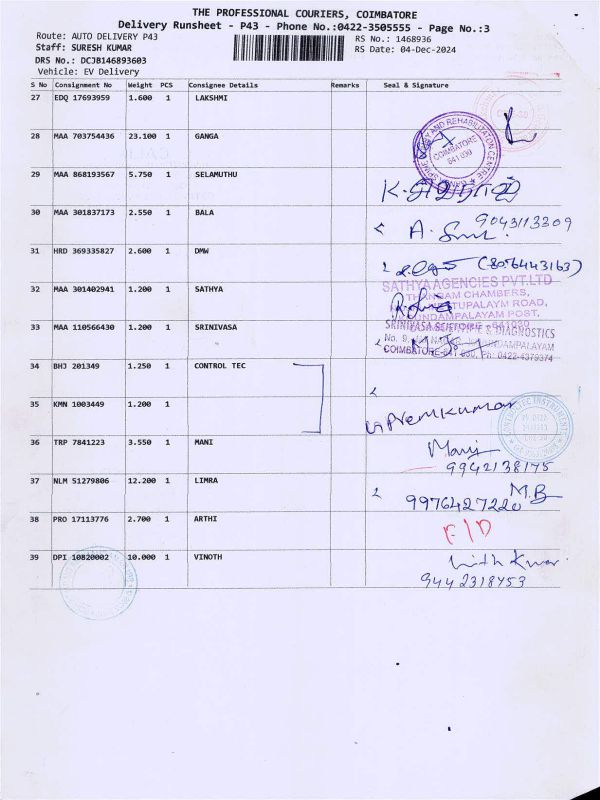 THE PROFESSIONAL COURIERS, COIMBATORE
Delivery Runsheet - P43 - Phone No.:0422-3505555 - Page No.:3
Route: AUTO DELIVERY P43
RS No.: 1468936
Staff: SURESH KUMAR
RS Date: 04-Dec-2024
DRS No.: DCJB146893603
Vehicle: EV Delivery
S No Consignment No Weight PCS Consignee Details Remarks Seal & Signature
27 EDQ 17693959 1.600 1 LAKSHMI
28 MAA 703754436 23.100 1 GANGA
SPINE AND REHABILITATION CENTRE COIMBATORE 641 030
29 MAA 868193567 5.750 1 SELAMUTHU
30 MAA 301837173 2.550 1 BALA 9043113309
31 HRD 369335827 2.600 1 DMW (8056443163)
32 MAA 301402941 1.200 1 SATHYA
SATHYA AGENCIES PVT.LTD
CHAMBERS,
ROAD,
POST,
33 MAA 110566430 1.200 1 SRINIVASA
SRINIVASA & DIAGNOSTICS
No. 9,
COIMBATORE-641 030, Ph: 0422-4379374
34 BHJ 201349 1.250 1 CONTROL TEC
35 KMN 1003449 1.200 1 Premkumar
36 TRP 7841223 3.550 1 MANI Mani
9942138175
37 NLM 51279806 12.200 1 LIMRA M.B
9976427220
38 PRO 17113776 2.700 1 ARTHI F/D
39 DPI 10820002 10.000 1 VINOTH
9442318753